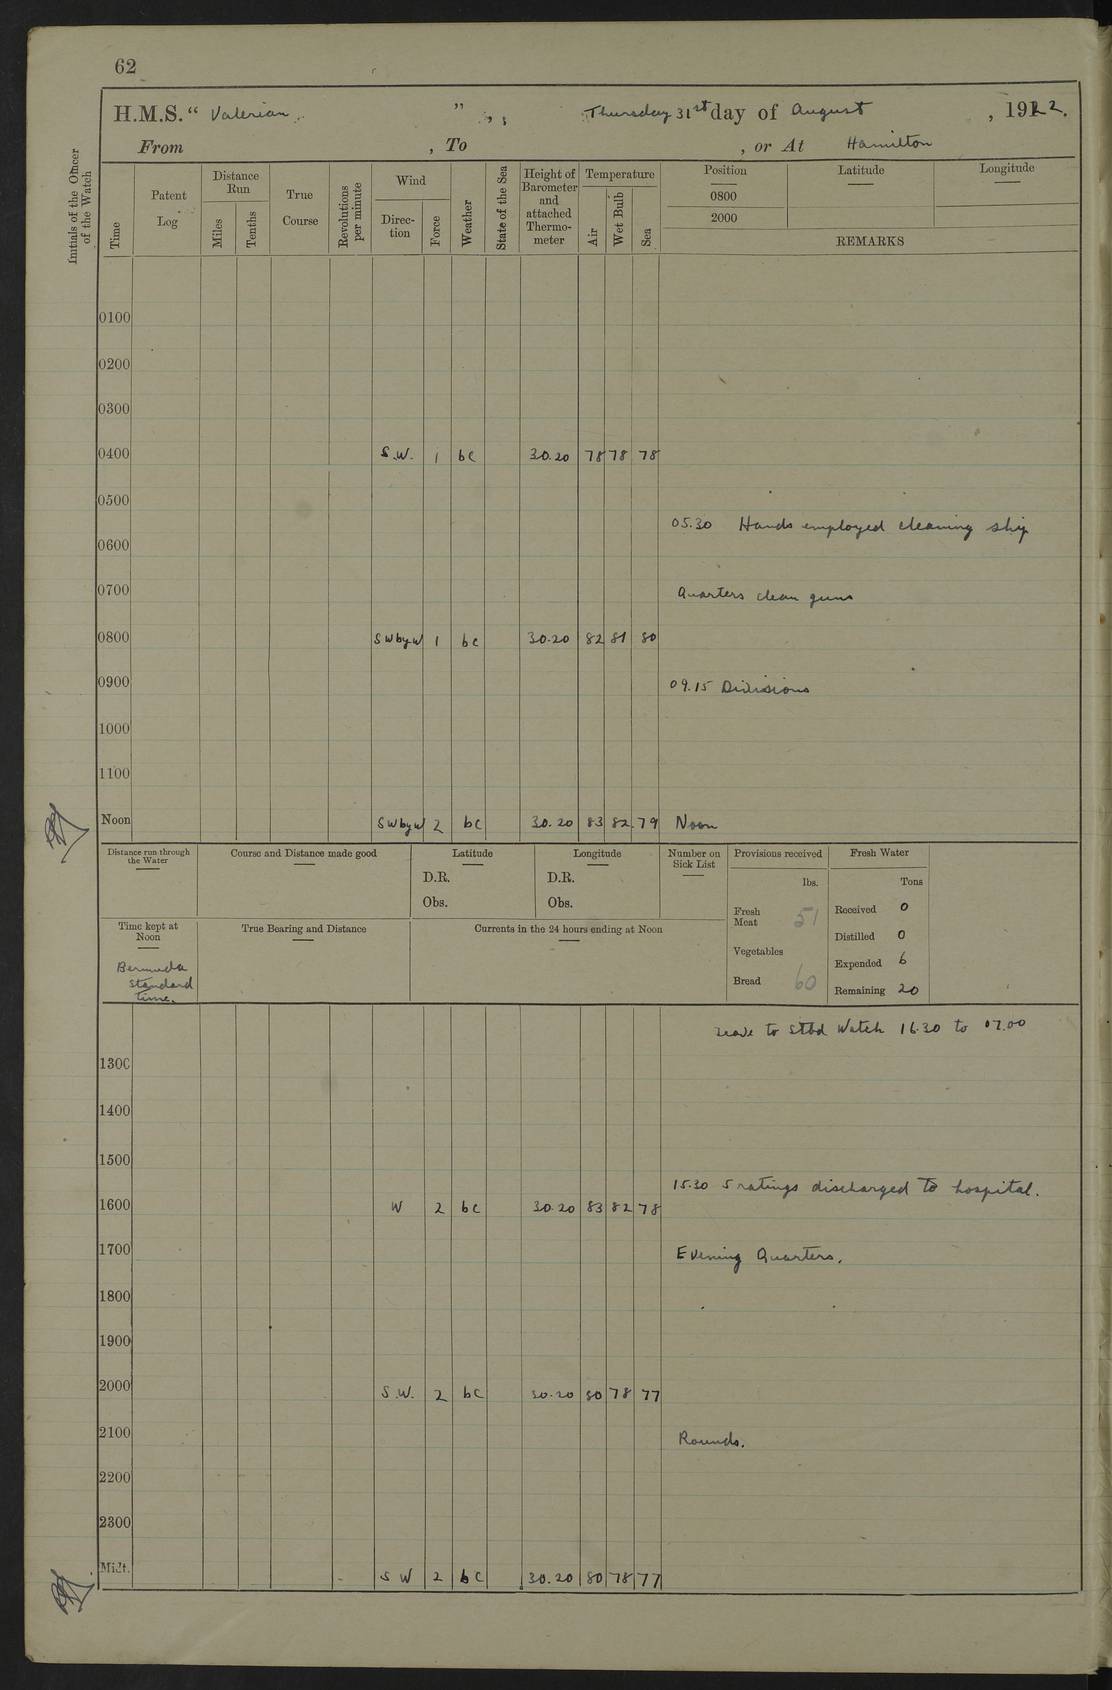 62
H.M.S. “ Valerian ” , , Thursday 31st day of August , 1922.
From , To , or At Hamilton
Initials of the Officer of the Watch
Time
Patent Log
Distance Run
Miles
Tenths
True Course
Revolutions per minute
Wind
Direc-tion
Force
Weather
State of the Sea
Height of Barometer and attached Thermo-meter
Temperature
Air
Wet Bulb
Sea
Position
0800
2000
Latitude
Longitude
REMARKS
0100
0200
0300
0400 S.W. 1 bc 30.20 78 78 78
0500
05.30 Hands employed cleaning ship
0600
0700 Quarters clean guns
0800 SWbyW 1 bc 30.20 82 81 80
0900 09.15 Divisions
1000
1100
Noon SWbyW 2 bc 30.20 83 82 79 Noon
Distance run through the Water
Course and Distance made good
Latitude
D.R.
Obs.
Longitude
D.R.
Obs.
Number on Sick List
Provisions received
lbs.
Fresh Meat 51
Vegetables
Bread 60
Fresh Water
Tons
Received 0
Distilled 0
Expended 6
Remaining 20
Time kept at Noon
Bermuda
Standard
time.
True Bearing and Distance
Currents in the 24 hours ending at Noon
Leave to Stbd Watch 16.30 to 07.00
1300
1400
1500
15.30 5 ratings discharged to hospital.
1600 W 2 bc 30.20 83 82 78
1700 Evening Quarters.
1800
1900
2000 S.W. 2 bc 30.20 80 78 77
2100 Rounds.
2200
2300
Midt. S W 2 bc 30.20 80 78 77